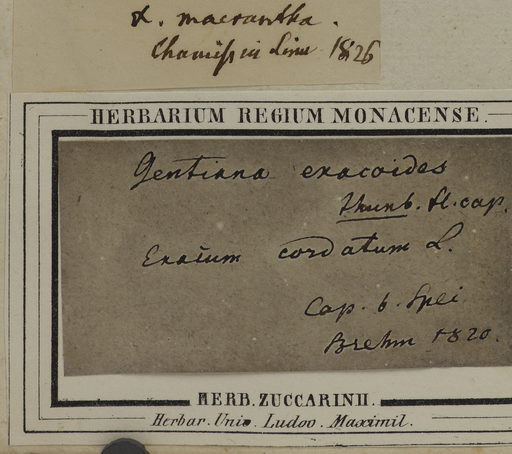 α. macrantha.
Chamiss in Linn 1826
HERBARIUM REGIUM MONACENSE.
Gentiana exacoides
thunb. fl. cap.
Exacum cordatum L.
Cap. b. Spei
Brehm 1820.
HERB. ZUCCARINII.
Herbar. Univ. Ludov. Maximil.